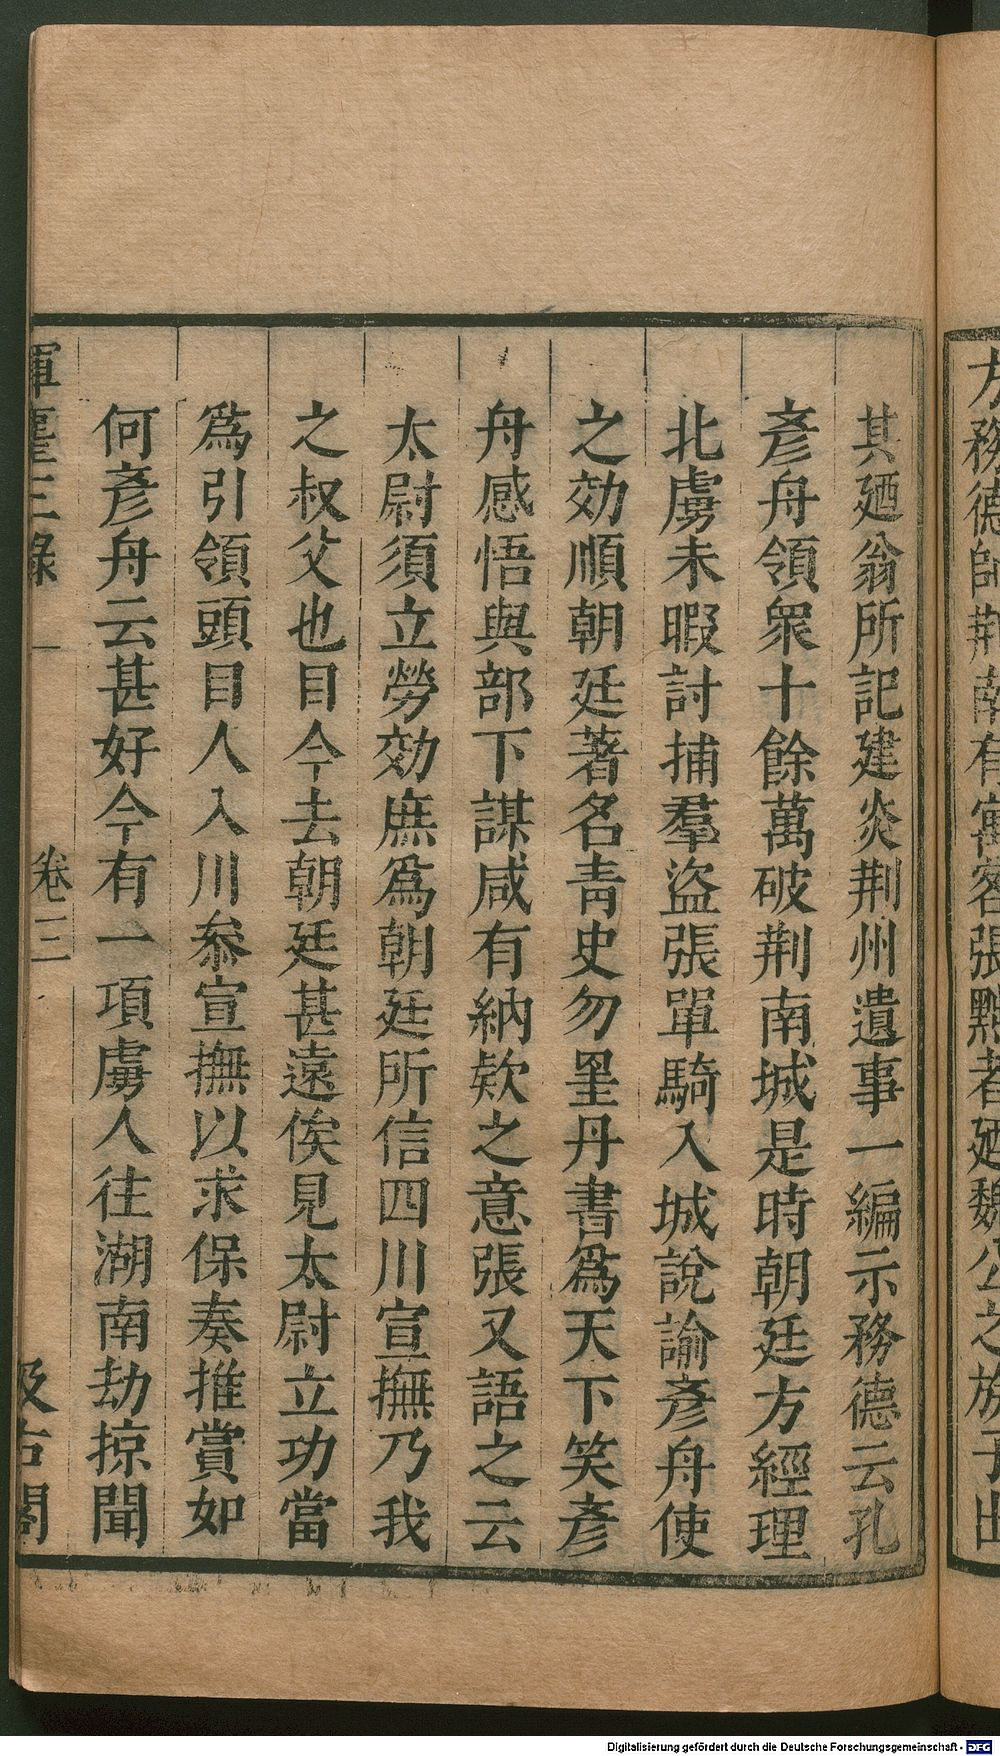 方務德師荆南有寓客張黙者廼魏公之族子出
其廼翁所記建炎荆州遺事一編示務德云孔
彥舟領衆十餘萬破荆南城是時朝廷方經理
北虜未暇討捕羣盜張單騎入城說諭彥舟使
之効順朝廷著名靑史勿罣丹書爲天下笑彥
舟感悟與部下謀咸有納欵之意張又語之云
太尉須立勞効庶爲朝廷所信四川宣撫乃我
之叔父也目今去朝廷甚遠俟見太尉立功當
爲引領頭目人入川叅宣撫以求保奏推賞如
何彥舟云甚好今有一項虜人往湖南劫掠聞
揮麈三錄 卷三 汲古閣
Digitalisierung gefördert durch die Deutsche Forschungsgemeinschaft - DFG